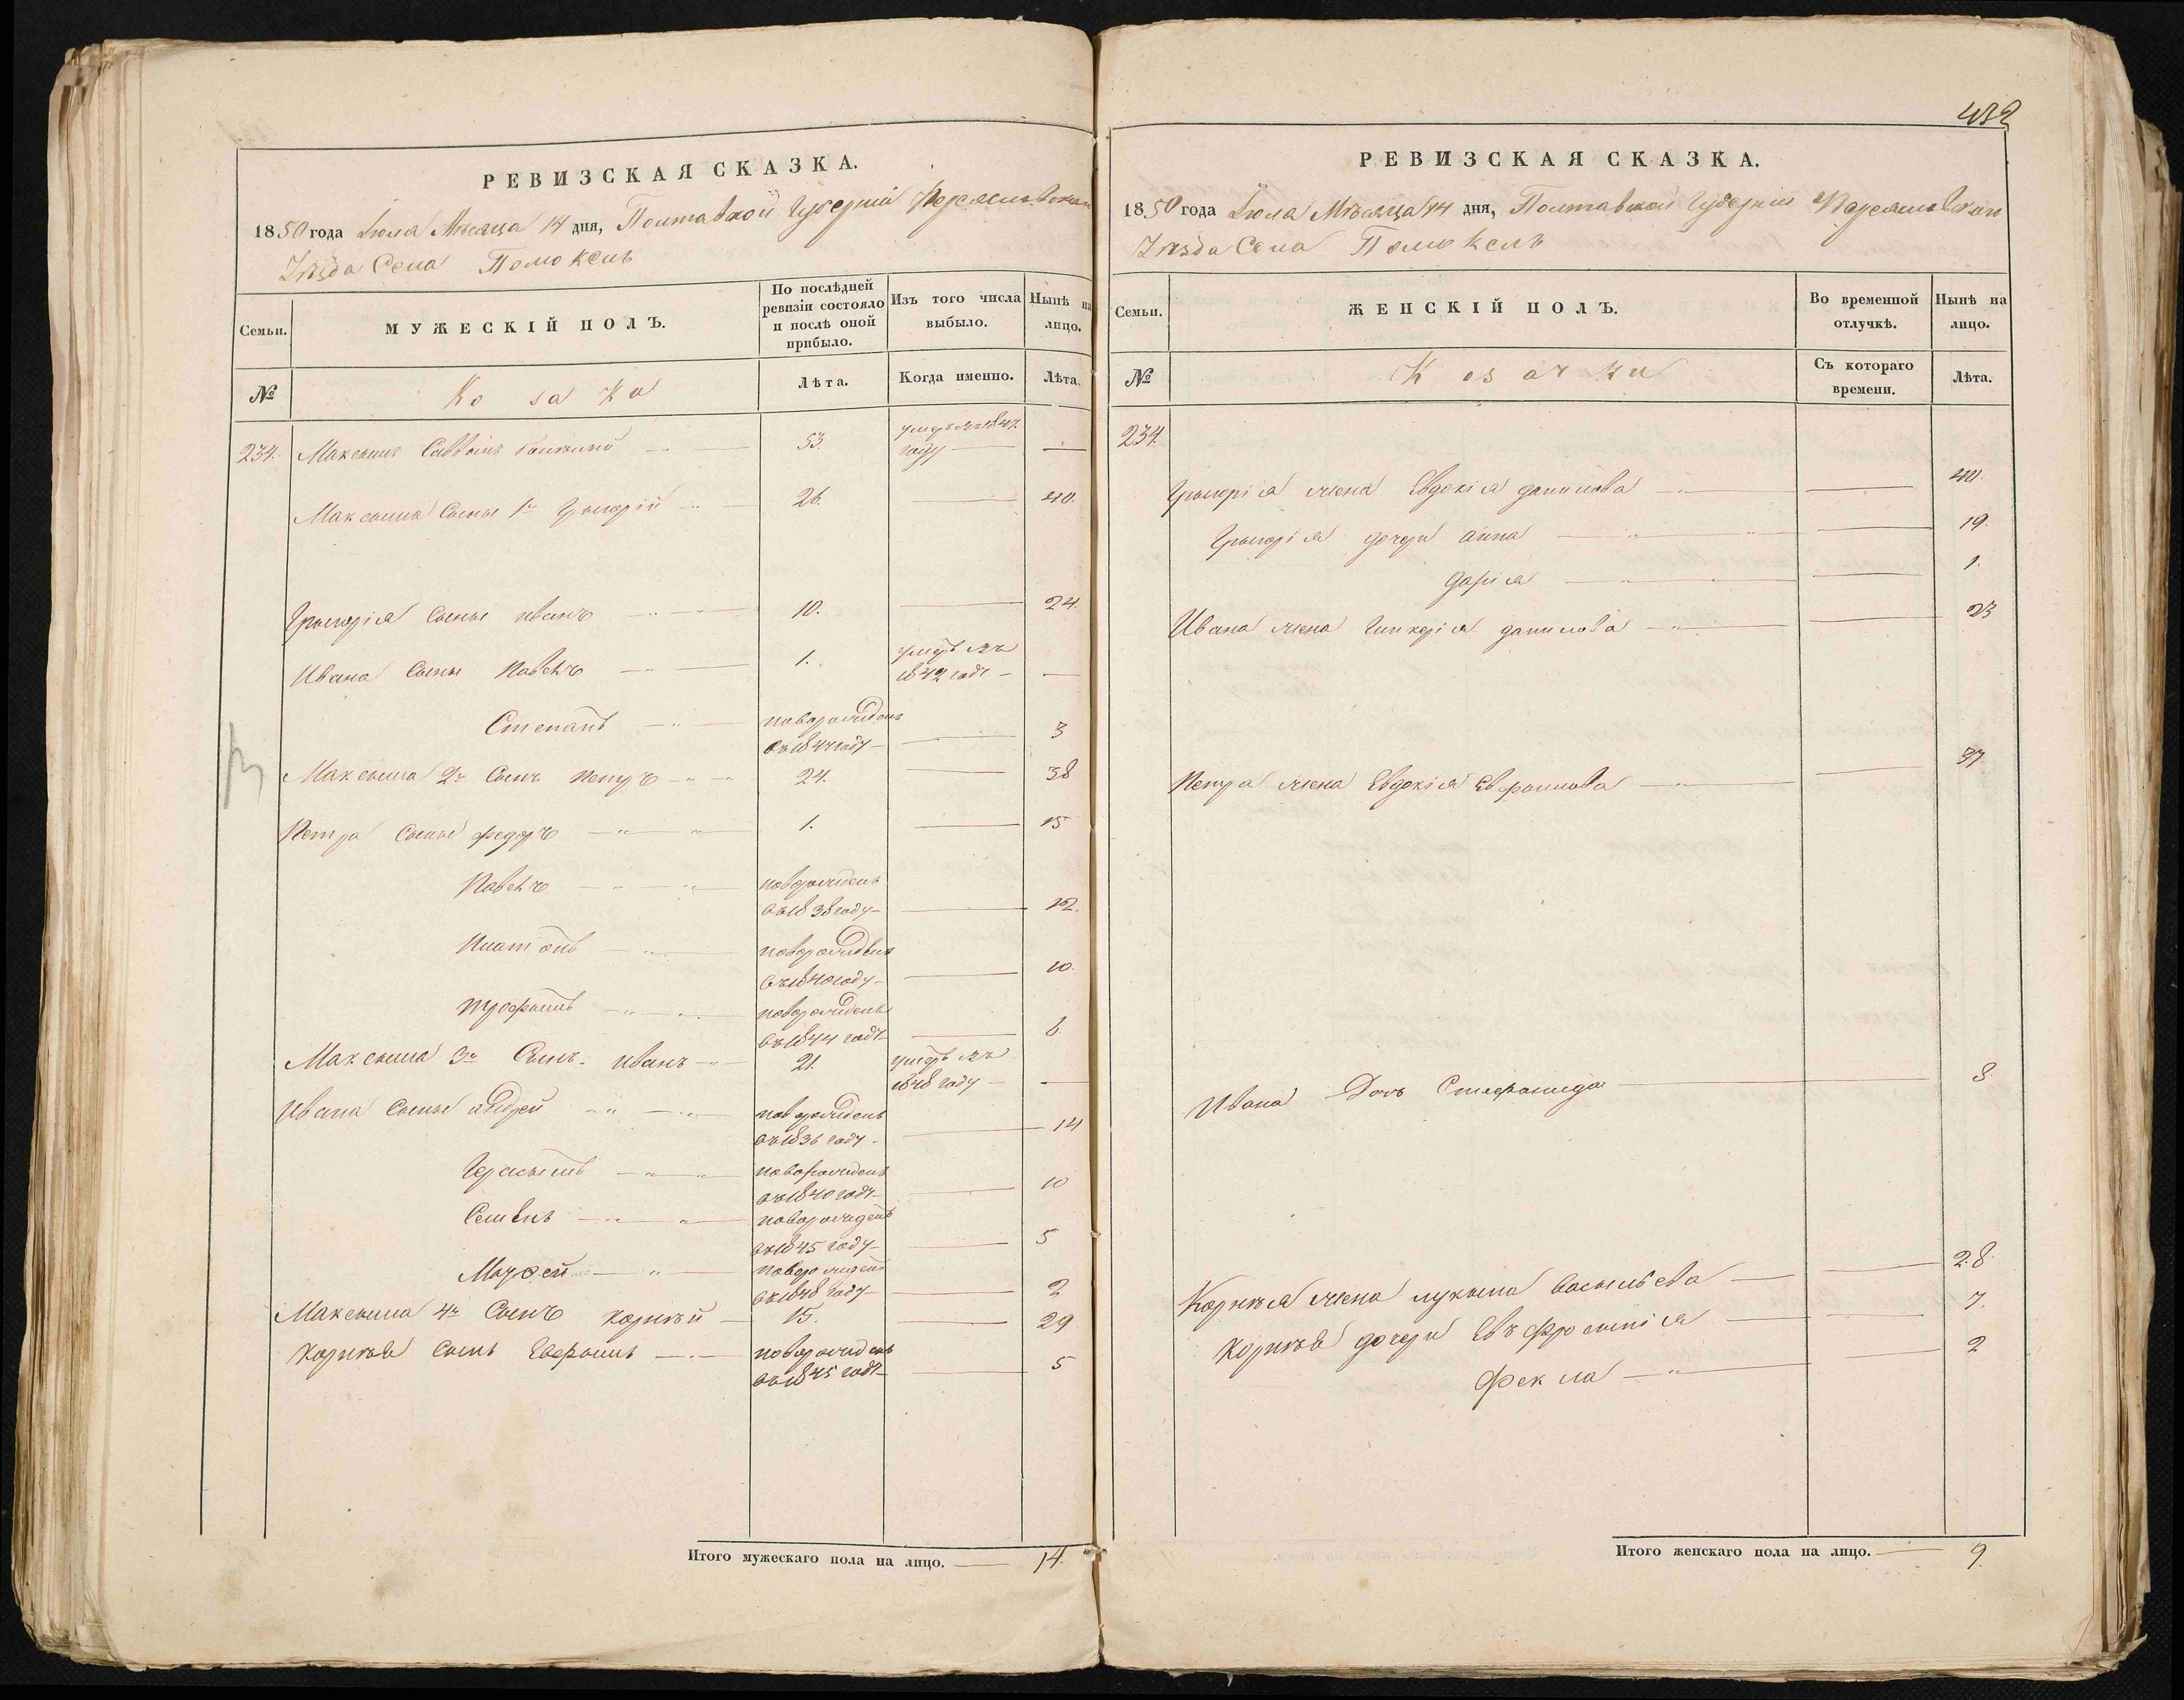 РЕВИЗСКАЯ СКАЗКА.
1850 года Іюля Мѣсяца 14 дня, Полтавской Губерніи
Уѣзда Села Помоклъ
Семьи.
МУЖЕСКІЙ ПОЛЪ.
По послѣдней ревизіи состояло и послѣ оной прибыло.
Изъ того числа выбыло.
Нынѣ на лицо.
№
Козаки
Лѣта.
Когда именно.
Лѣта.
234. Максимъ Саввинъ 53. умеръ въ 1847. году —
Максима Сыны 1й Григорій 26. 40.
Григорія Сыны иванъ 10. 24.
Ивана Сыны Павелъ 1. умеръ въ 1842 годе —
Степанъ новорожденъ въ 1847 году 3
Максима 2й Сынъ Петръ 24. 38
Петра Сыны федоръ 1. 15
Павелъ новорожденъ въ 1838 году 12.
Платонъ новорожденъ въ 1840 году 10.
трофимъ новорожденъ въ 1844 годе 6.
Максима 3й Сынъ иванъ 21. умеръ въ 1848 году —
Ивана Сыны андрей новорожденъ въ 1836 году 14
Герасимъ новорожденъ въ 1840 годе 10
Семенъ новорожденъ въ 1845 году 5
новорожденъ въ 1848 году 2
Максима 4й Сынъ корнѣй 15. 29
Корнѣя сынъ Евфимъ новорожденъ въ 1845 годе 5
Итого мужескаго пола на лицо. 14.
432
РЕВИЗСКАЯ СКАЗКА.
1850 года Іюля Мѣсяца 14 дня, Полтавской Губерніи
Уѣзда Села Помоклъ
Семьи.
ЖЕНСКІЙ ПОЛЪ.
Во временной отлучкѣ.
Нынѣ на лицо.
№
Козачки
Съ котораго времени.
Лѣта.
234.
Григорія жена Евдокія данилова 40.
Григорія дочери анна 19.
дарія 1.
Ивана жена Гликерія данилова 23
Петра жена Евдокія Ефраимова 37
Ивана Дочь Стефанида 8.
Корнѣя жена лукина васильева 28.
Корнѣя дочери Евфросинія 7.
Фекла 2
Итого женскаго пола на лицо. 9.